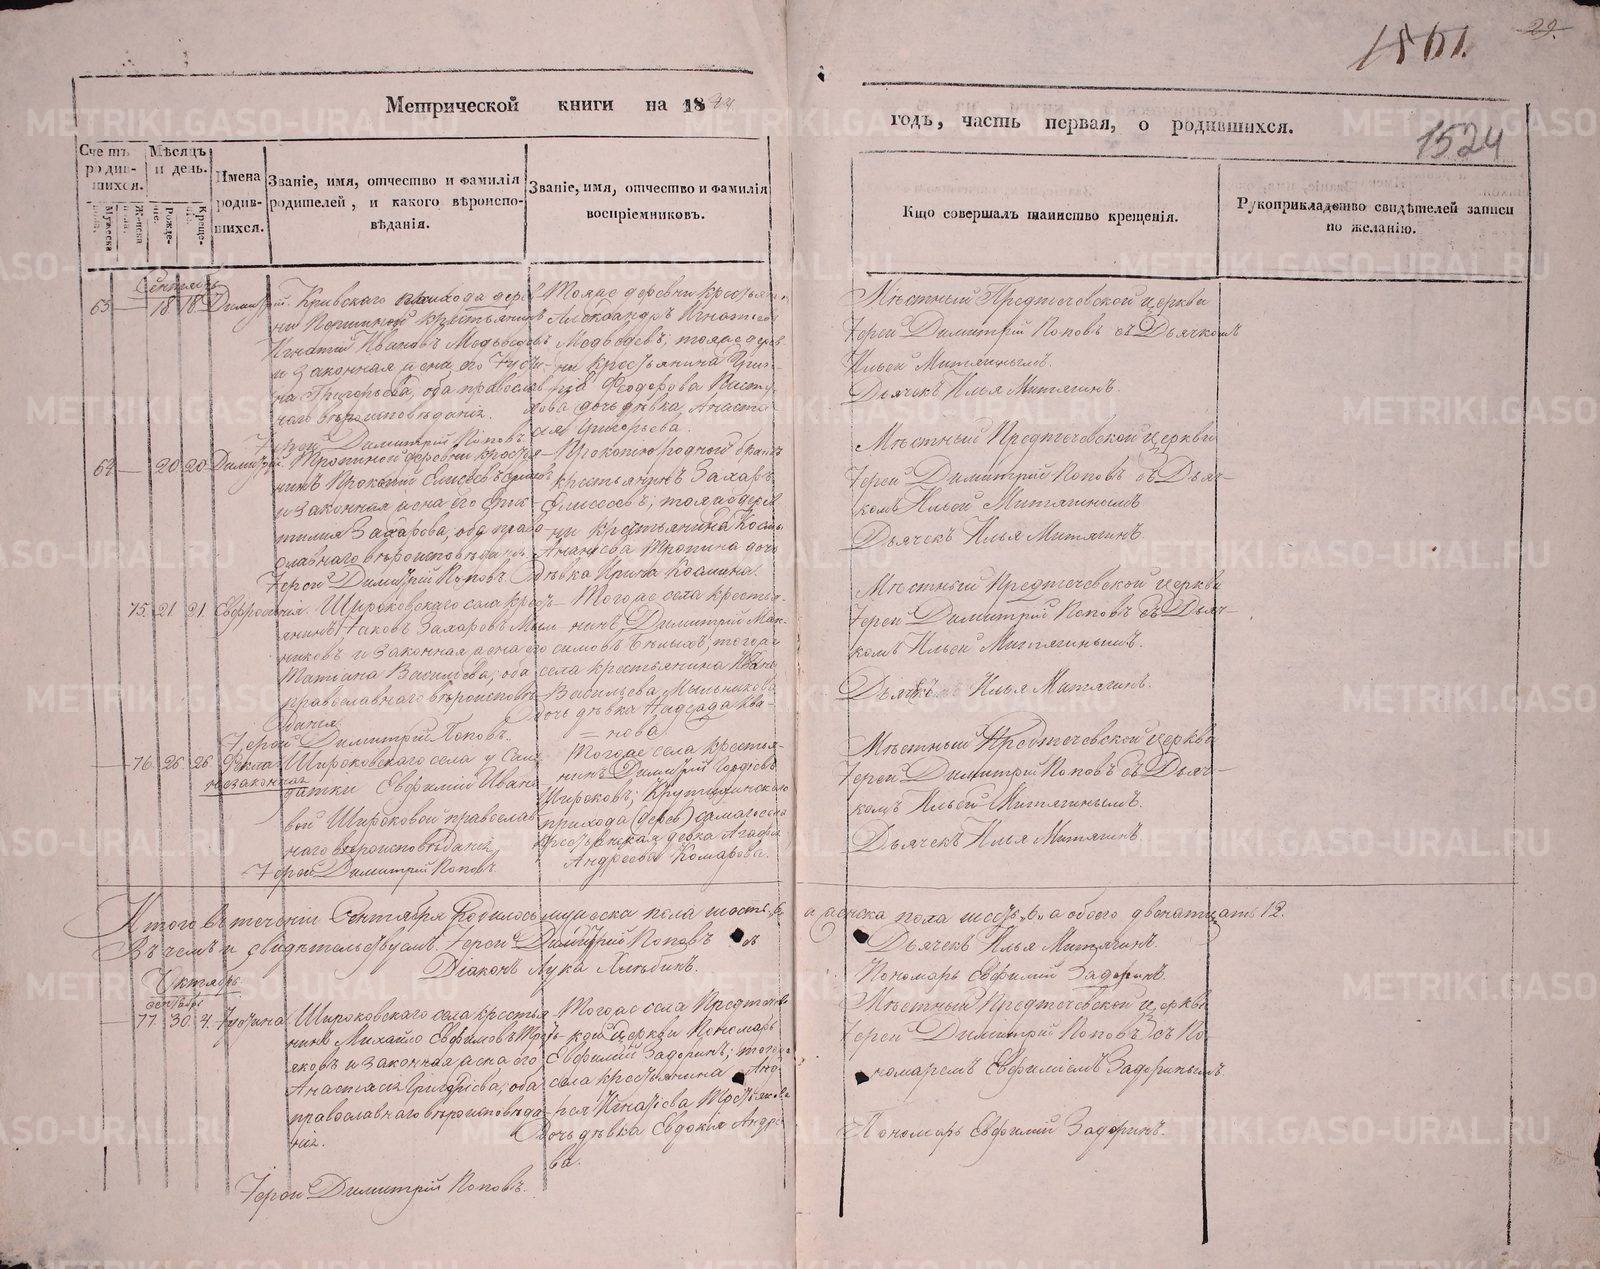 29.
1861.
1524
Метрической книги на 1844
годъ, часть первая, о родившихся.
Счетъ родив-шихся.
Мужеска пола.
Женска пола.
Мѣсяцъ и день.
Рожде-
Креще-
Имена родив-шихся.
Званіе, имя, отчество и фамилія родителей, и какого вѣроиспо-вѣданія.
Званіе, имя, отчество и фамилія воспріемниковъ.
Кто совершалъ таинство крещенія.
Рукоприкладство свидѣтелей записи по желанію.
Сентябрь
18 18 Димитрій.
Кривскаго прихода дерев
ни крестьянинъ
Игнатій Ивановъ Медведевъ
и законная жена его Усти-
на Григорьева, оба православ
наго вѣроисповѣданія.
Іерей Димитрій Поповъ
Тояже деревни крестьяни
Александръ Игнатьев
Медведевъ, тояже дерев
ни крестьянина Григо-
Феодорова
дочь дѣвка Анаста
сія Григорьева.
Мѣстный Предтечевской церкви
Іерей Димитрій Поповъ съ Дьячкомъ
Ильей Митягинымъ.
Дьячекъ Илья Митягинъ.
64 — 20 20 Димитрій.
Тропиной деревни крестья-
нинъ Прокопій Елисеевъ
и законная жена его
Захарова, оба право-
славнаго вѣроисповѣдан.
Іерей Димитрій Поповъ.
Прокопію родной братъ
крестьянинъ Захаръ
Елисеевъ; тояже дерев
ни крестьянина Косьмы
Ананьева Тропина дочь
дѣвка Ирина Космина.
Мѣстный Предтечевской церкви
Іерей Димитрій Поповъ съ Дьяч-
комъ Ильей Митягинымъ
Дьячекъ Илья Митягинъ.
75. 21 21. Евфросинія.
Широковскаго села крест-
янинъ Іаковъ Захаровъ Мыль
никовъ и законная жена его
Татьяна Васильева, оба
православнаго вѣроисповѣ-
данія.
Іерей Димитрій Поповъ.
Тогоже села крестья-
нинъ Димитрій Мак-
симовъ Бѣлыхъ; тогоже
села крестьянина Ивана
Васильева Мыльникова
дочь дѣвка Надежда Ива-
= нова
Мѣстный Предтечевской церкви
Іерей Димитрій Поповъ съ Дьяч-
комъ Ильей Митягинымъ.
Дьячекъ Илья Митягинъ.
— 76. 26. 26. Фекла
незаконная
Широковскаго села у Сол-
датки Евфиміи Ивано
вой Широковой православ
наго вѣроисповѣданія
Іерей Димитрій Поповъ.
Тогоже села крестья-
нинъ Димитрій Гордѣевъ
Широковъ; Крутихинскаго
прихода (дерев)
крестьянская девка Агафія
Андреева Комарова.
Мѣстный Предтечевской церкви
Іерей Димитрій Поповъ съ Дьяч-
комъ Ильей Митягинымъ.
Дьячекъ Илья Митягинъ
Итого въ теченіи Сентября родилось мужеска пола шесть „6„ а женска пола шесть „6„ а обоего двенатцать 12.
Въ чемъ и свидѣтельствуемъ. Іерей Димитрій Поповъ
Діаконъ Лука Хлѣбинъ.
Дьячекъ Илья Митягинъ.
Пономарь Евфимій Задоринъ.
Октябрь
сентября
— 77. 30 4. Іустина
Широковскаго села крестья
нинъ Михайло Евфимовъ Трость-
яковъ и законная жена его
Анастасія Григорьева, оба
православнаго вѣроисповѣда-
нія.
Іерей Димитрій Поповъ.
Тогоже села Предтечев
кой церкви Пономарь
Евфимій Задоринъ; тогоже
села крестьянина Анд-
рея Игнатьева Тростьякова
дочь дѣвка Евдокія Андре
ва.
Мѣстный Предтечевской церкви
Іерей Димитрій Поповъ съ По-
номаремъ Евфиміемъ Задоринымъ.
Пономарь Евфимій Задоринъ.
METRIKI.GASO-URAL.RU